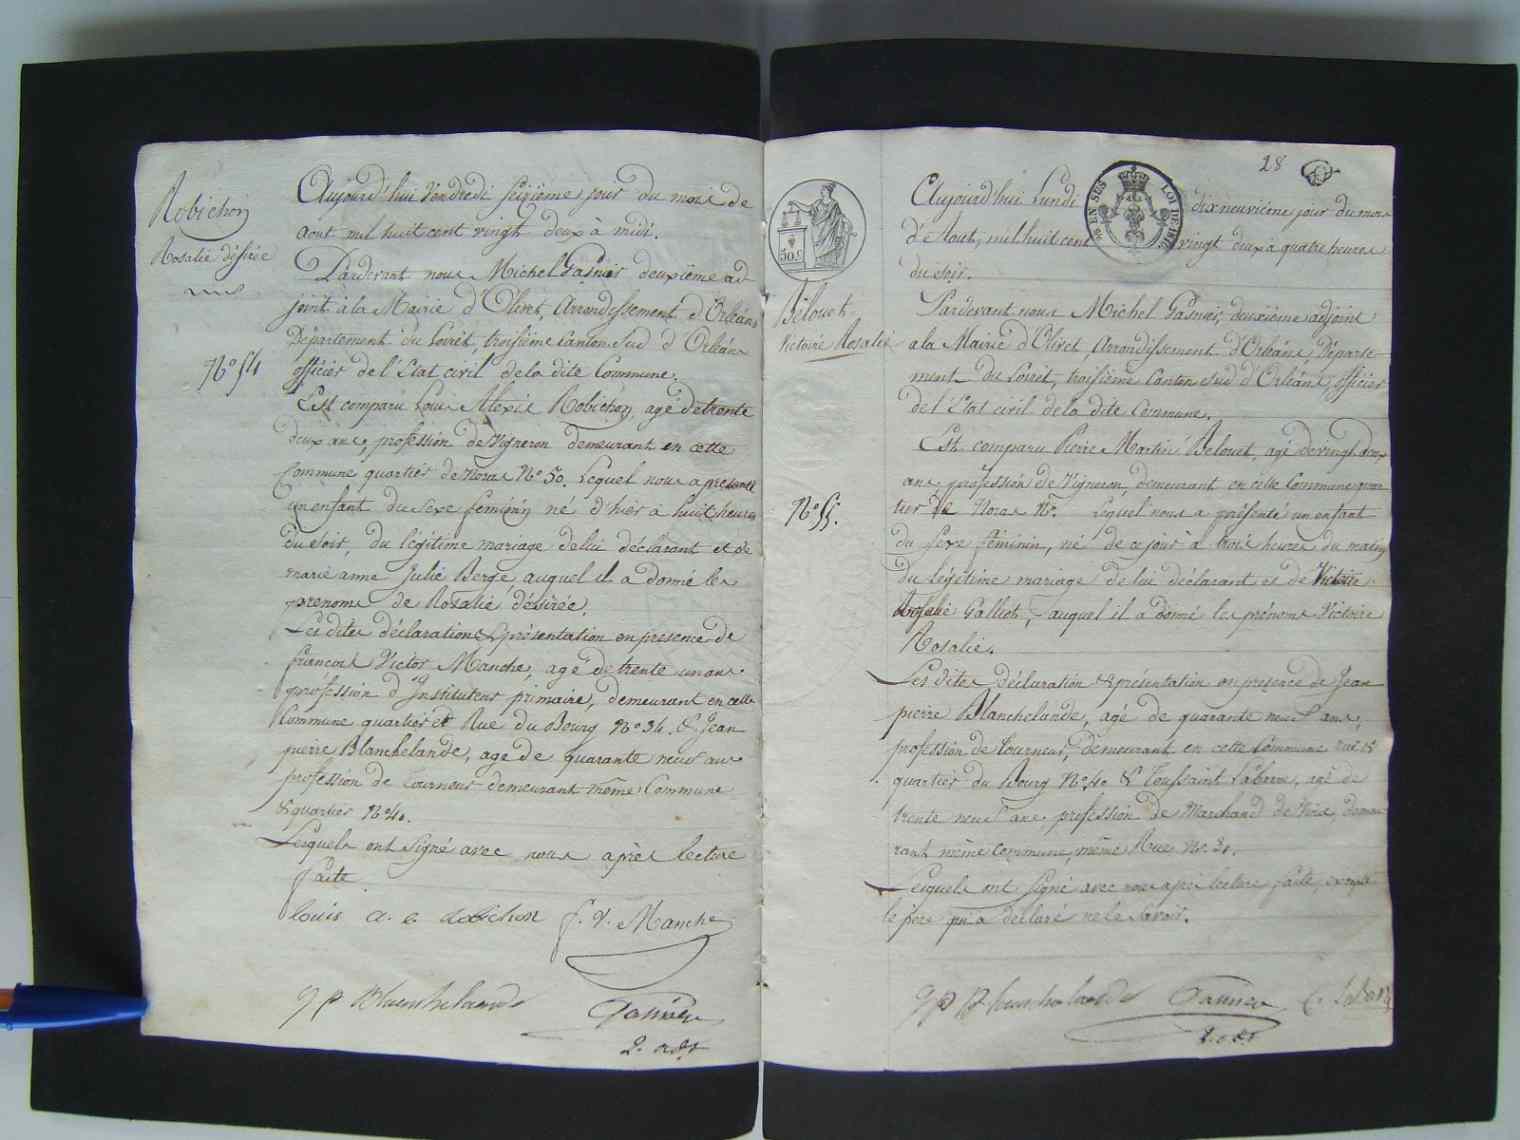 Robichon
Rosalie désirée
N.º 54
Aujourd'hui Vendredi seizième jour du mois de
aout mil huit cent vingt deux à midi.
Pardevant nous Michel Gasnier deuxième ad
joint à la Mairie d'Olivet, Arrondissement d'Orléans
Département du Loiret, troisième Canton Sud d'Orléans
officier de l'Etat civil de la dite Commune.
Est comparu Louis Alexis Robichon, agé de trente
deux ans, profession de Vigneron demeurant en cette
Commune quartier de Noras N.º 50. Lequel nous a présenté
un enfant du Sexe féminin né d'hier à huit heures
du soir, du légitime mariage de lui déclarant et de
marie anne Julie Berge auquel il a donné les
prenoms de Rosalie désirée.
Les dites déclarations & présentation en presence de
francois Victor Manche, agé de trente un ans
profession d'Instituteur primaire, demeurant en cette
Commune quartier et Rue du Bourg N.º 34. & Jean
pierre Blanchelande, age de quarante neuf ans
profession de Tourneur demeurant même Commune
& quartier N.º 40.
Lesquels ont signé avec nous après lecture
faite.
louis a. robichon f. v. Manche
J P Blanchelande Gasnier
2. adjt
28
EN SUS
LOI DE 1816
50 C
Bélouet
Victoire Rosalie
N.º 55.
Aujourd'hui Lundi dix neuvième jour du mois
d'Aout, mil huit cent vingt deux à quatre heures
du soir.
Pardevant nous Michel Gasnier, deuxième adjoint
a la Mairie d'Olivet, Arrondissement d'Orléans, Départe
ment du Loiret, troisième Canton Sud d'Orléans, officier
de l'Etat civil de la dite Commune.
Est comparu Pierre Martin Belouet, agé de vingt deux
ans profession de Vigneron, demeurant en cette Commune quar
tier de Noras N.º Lequel nous a présenté un enfant
du Sexe féminin, né de ce jour à trois heures du matin
du légitime mariage de lui déclarant et de Victoire
Rosalie Galliot, auquel il a donné les prénoms Victoire
Rosalie.
Les dites Déclaration & présentation en presence de Jean
pierre Blanchelande, agé de quarante neuf ans,
profession de Tourneur, demeurant en cette Commune rue &
quartier du Bourg N.º 40 & Toussaint Labarre, agé de
trente neuf ans profession de Marchand de Vins, demeu
rant même Commune, même Rue N.º 31.
Lesquels ont signé avec nous après lecture faite, excepté
le pere qui a déclaré ne le savoir.
J P Blanchelande Gasnier
2. adjt